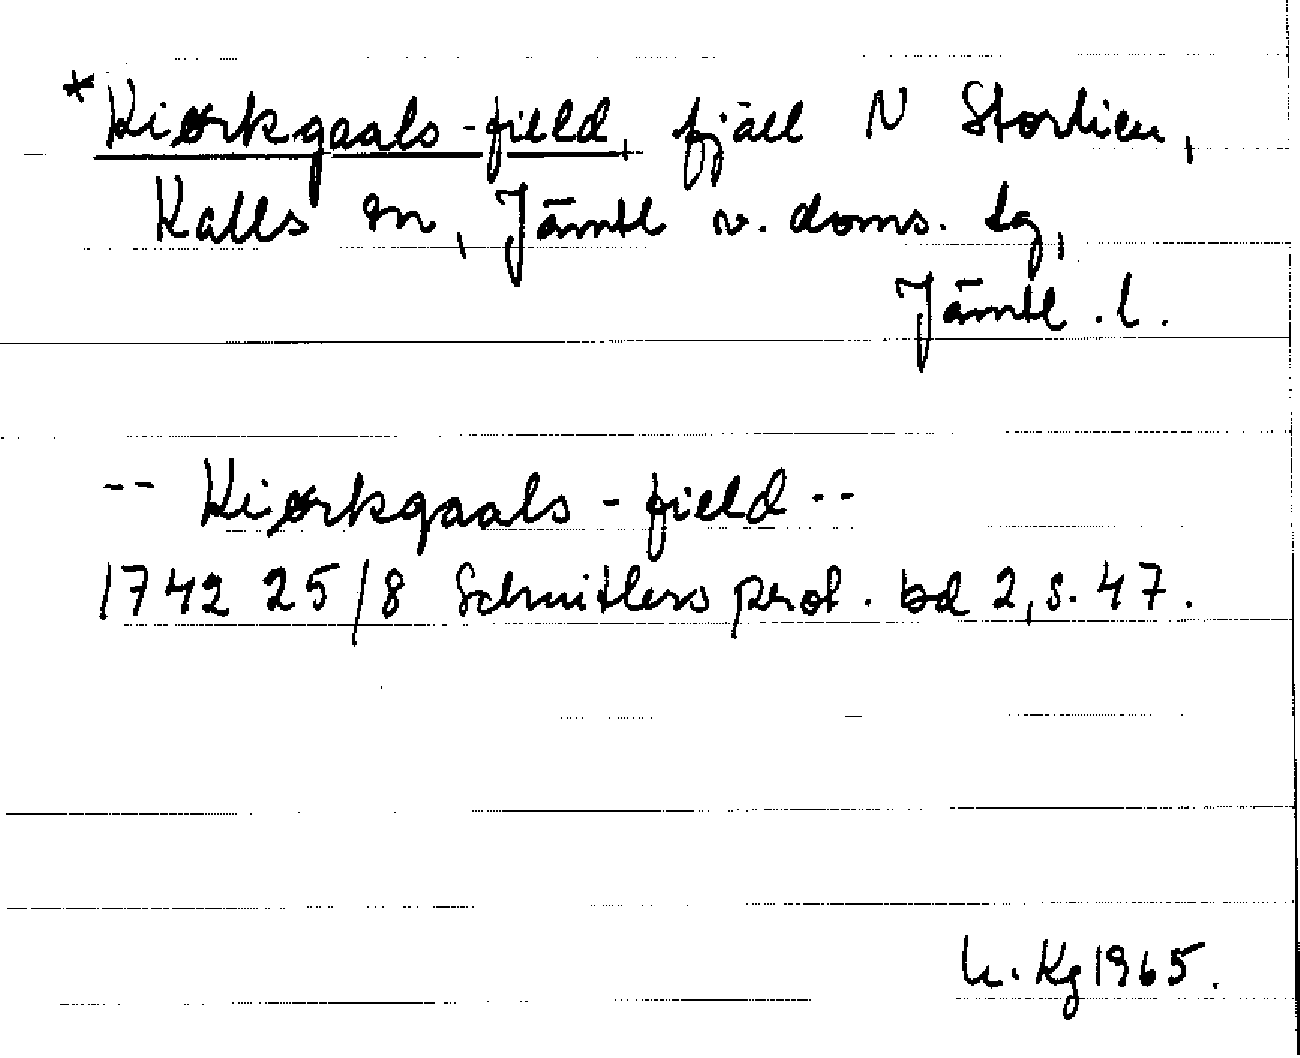 *Kiørkgaals-field, fjäll N Storlien,
Kalls sn, Jämtl v. doms. tg,
Jämtl. l.
-- Kiørkgaals-field --
1742 25/8 Schnitlers prot. bd 2, s. 47.
h. Kg 1965.